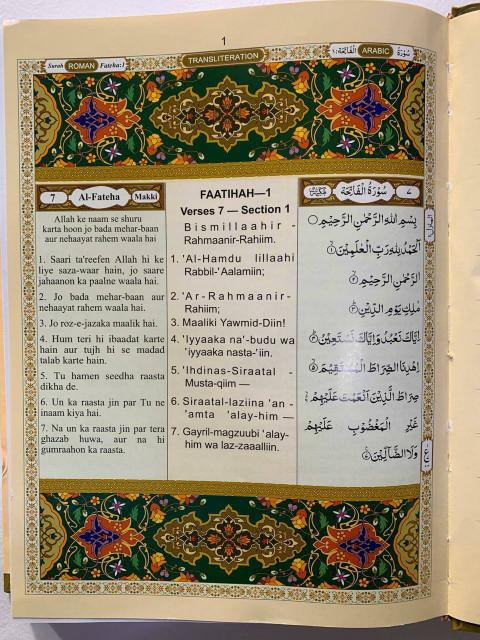 1
Surah ROMAN Fateha:1
TRANSLITERATION
سُوْرَةُ ARABIC الْفَاتِحَة:١
7 Al-Fateha Makki
Allah ke naam se shuru
karta hoon jo bada mehar-baan
aur nehaayat rahem waala hai
1. Saari ta'reefen Allah hi ke
liye saza-waar hain, jo saare
jahaanon ka paalne waala hai.
2. Jo bada mehar-baan aur
nehaayat rahem waala hai.
3. Jo roz-e-jazaka maalik hai.
4. Hum teri hi ibaadat karte
hain aur tujh hi se madad
talab karte hain.
5. Tu hamen seedha raasta
dikha de.
6. Un ka raasta jin par Tu ne
inaam kiya hai.
7. Na un ka raasta jin par tera
ghazab huwa, aur na hi
gumraahon ka raasta.
FAATIHAH—1
Verses 7 — Section 1
Bismillaahir -
Rahmaanir-Rahiim.
1. 'Al-Hamdu lillaahi
Rabbil-'Aalamiin;
2. 'Ar-Rahmaanir-
Rahiim;
3. Maaliki Yawmid-Diin!
4. 'Iyyaaka na'-budu wa
'iyyaaka nasta-'iin.
5. 'Ihdinas-Siraatal -
Musta-qiim —
6. Siraatal-laziina 'an -
'amta 'alay-him —
7. Gayril-magzuubi 'alay-
him wa laz-zaaalliin.
سُوْرَةُ الْفَاتِحَة ٧
بِسْمِ اللهِ الرَّحْمٰنِ الرَّحِيْمِ
اَلْحَمْدُ لِلّٰهِ رَبِّ الْعٰلَمِيْنَ ١
الرَّحْمٰنِ الرَّحِيْمِ ٢
مٰلِكِ يَوْمِ الدِّيْنِ ٣
اِيَّاكَ نَعْبُدُ وَاِيَّاكَ نَسْتَعِيْنُ ٤
اِهْدِنَا الصِّرَاطَ الْمُسْتَقِيْمَ ٥
صِرَاطَ الَّذِيْنَ اَنْعَمْتَ عَلَيْهِمْ ٦
غَيْرِ الْمَغْضُوْبِ عَلَيْهِمْ
وَلَا الضَّآلِّيْنَ